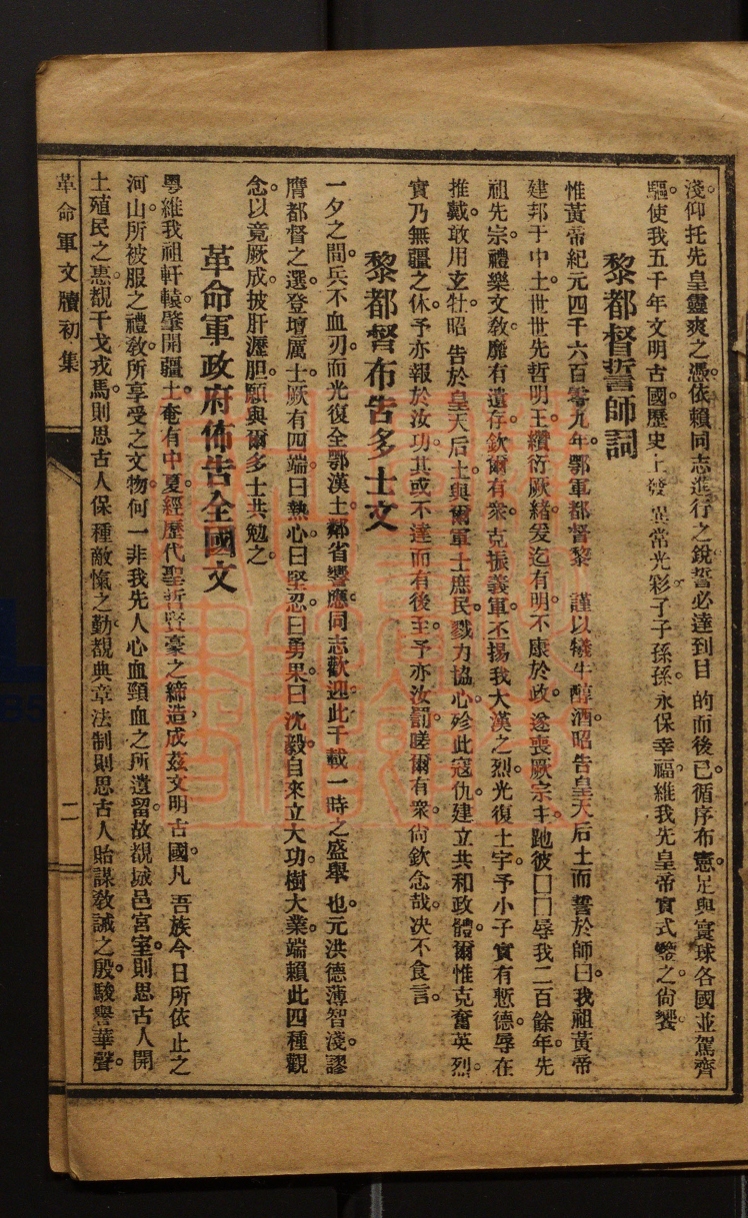 淺。仰托先皇靈爽之憑。依賴同志進行之銳。誓必達到目的而後已。循序布憲。足與寰球各國並駕齊
驅。使我五千年文明古國。歷史上發異常光彩。子子孫孫。永保幸福。維我先皇帝實式鑒之。尙饗。
黎都督誓師詞
惟黃帝紀元四千六百零九年。鄂軍都督黎　謹以犧牛醇酒。昭告皇天后土而誓於師曰。我祖黃帝
建邦于中土。世世先哲明王。纘衍厥緒。爰迄有明。不康於政。遂喪厥宗主。虵彼囗囗。辱我二百餘年。先
祖先宗。禮樂文教。靡有遺存。欽爾有衆。克振義軍。丕揚我大漢之烈。光復土宇。予小子實有慙德。辱在
推戴。敢用玄牡。昭告於皇天后土。與爾軍士庶民。戮力協心。殄此寇仇。建立共和政體。爾惟克奮英烈。
實乃無疆之休。予亦報於汝功。其或不達而有後至。予亦汝罰。嗟爾有衆。尙欽念哉。决不食言。
黎都督布告多士文
一夕之間。兵不血刃。而光復全鄂。漢土鄰省響應。同志歡迎。此千載一時之盛舉也。元洪德薄智淺。謬
膺都督之選。登壇厲士。厥有四端。曰熱心。曰堅忍。曰勇果。曰沈毅。自來立大功。樹大業。端賴此四種觀
念。以竟厥成。披肝瀝胆。願與爾多士共勉之。
革命軍政府佈告全國文
粤維我祖軒轅。肇開疆土。奄有中夏。經歷代聖哲賢豪之締造。成茲文明古國。凡吾族今日所依止之
河山。所被服之禮教。所享受之文物。何一非我先人心血頸血之所遺留。故覩城邑宮室。則思古人開
土殖民之惠。覩干戈戎馬。則思古人保種敵愾之勤。覩典章法制。則思古人貽謀敎誡之殷。駿譽華聲。
革命軍文牘初集
二